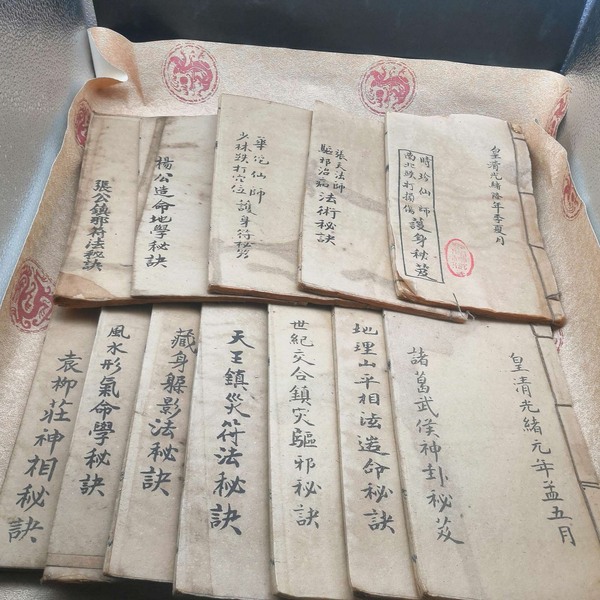 皇清光緒陸年季夏月
時珍仙師
南北跌打損傷
護身秘笈
張天法師
驅邪治病法術秘訣
華佗仙師
少林跌打穴位護身符秘笈
楊公造命地學秘訣
張公鎮邪符法秘訣
皇清光緒元年孟五月
諸葛武侯神卦秘芨
地理山平相法造命秘訣
世紀交合鎮灾驅邪秘訣
天王鎮災符法秘訣
藏身躲影法秘訣
風水形氣命學秘訣
袁柳莊神相秘訣